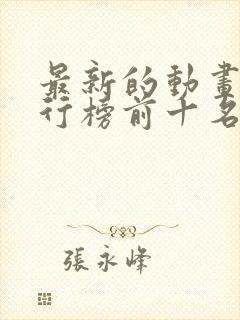 最新的動畫
行榜前十名
張永峰